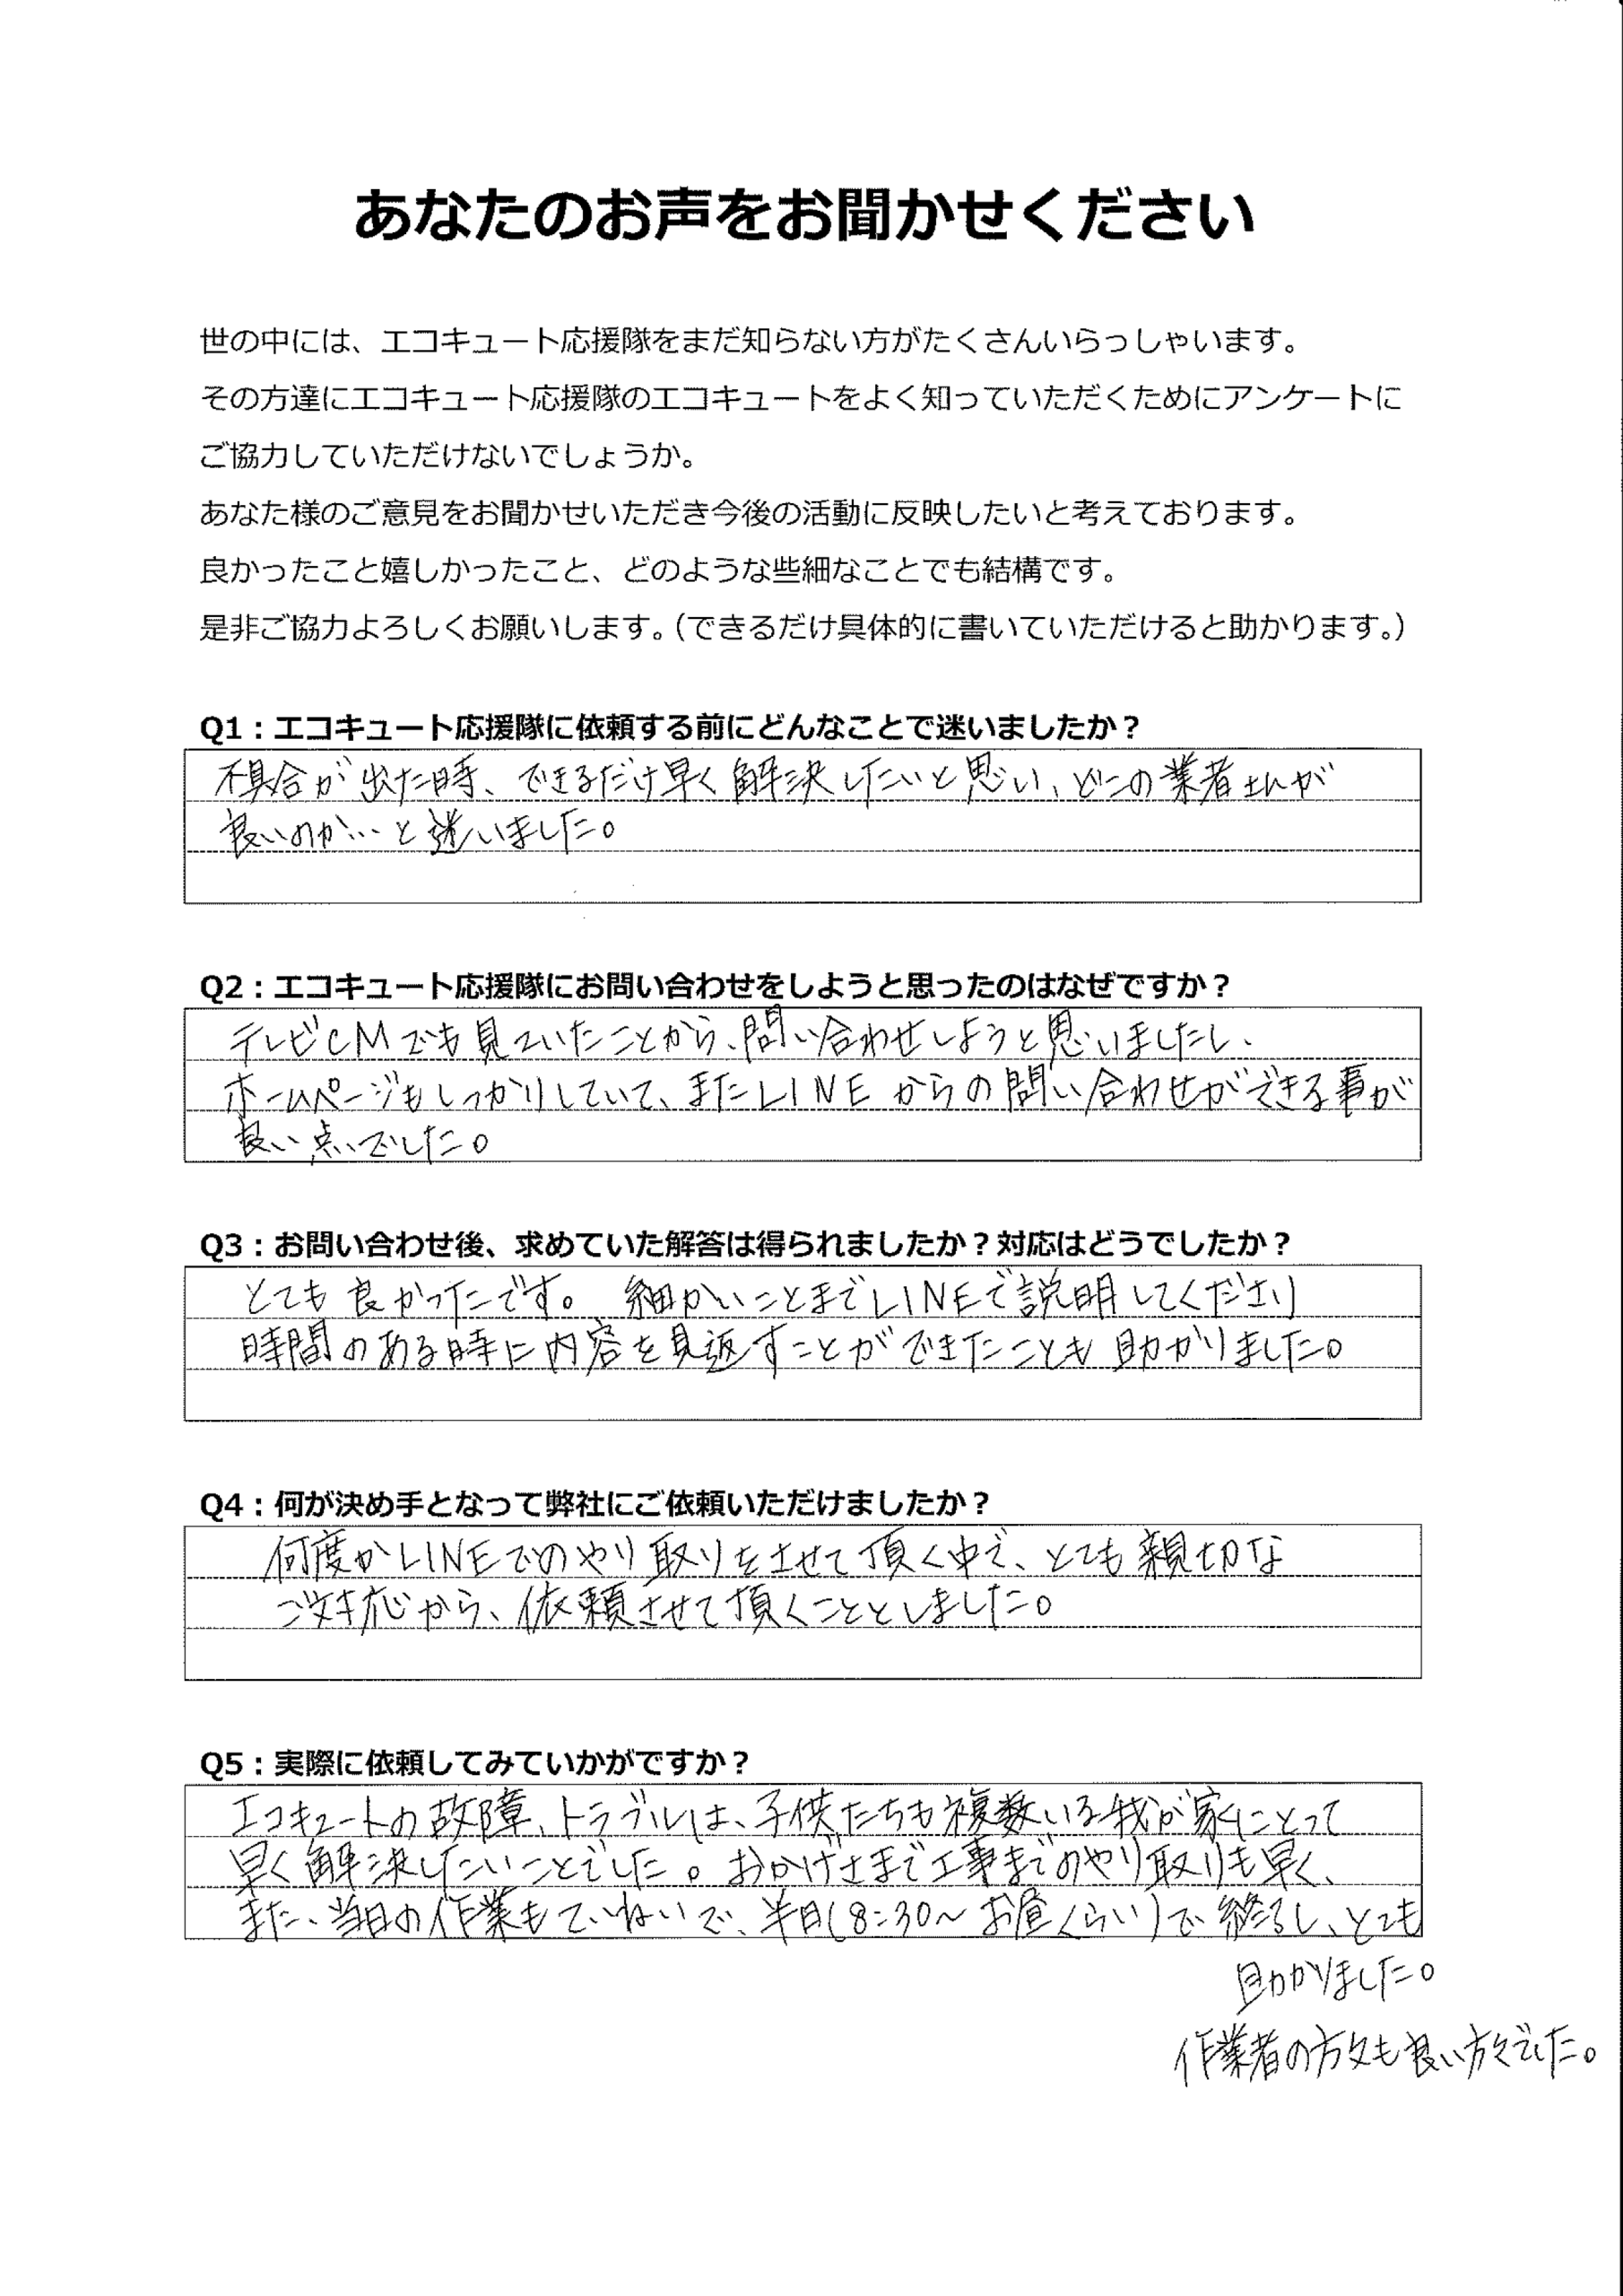 あなたのお声をお聞かせください
世の中には、エコキュート応援隊をまだ知らない方がたくさんいらっしゃいます。
その方達にエコキュート応援隊のエコキュートをよく知っていただくためにアンケートに
ご協力していただけないでしょうか。
あなた様のご意見をお聞かせいただき今後の活動に反映したいと考えております。
良かったこと嬉しかったこと、どのような些細なことでも結構です。
是非ご協力よろしくお願いします。（できるだけ具体的に書いていただけると助かります。）
Q1：エコキュート応援隊に依頼する前にどんなことで迷いましたか？
不具合が出た時、できるだけ早く解決したいと思い、どこの業者さんが
良いのか…と迷いました。
Q2：エコキュート応援隊にお問い合わせをしようと思ったのはなぜですか？
テレビCMでも見ていたことから、問い合わせしようと思いましたし、
ホームページもしっかりしていて、またLINEからの問い合わせができる事が
良い点でした。
Q3：お問い合わせ後、求めていた解答は得られましたか？対応はどうでしたか？
とても良かったです。 細かいことまでLINEで説明してくださり
時間のある時に内容を見返すことができたことも助かりました。
Q4：何が決め手となって弊社にご依頼いただけましたか？
何度かLINEでのやり取りをさせて頂く中で、とても親切な
ご対応から、依頼させて頂くこととしました。
Q5：実際に依頼してみていかがですか？
エコキュートの故障、トラブルは、子供たちも複数いる我が家にとって
早く解決したいことでした。おかげさまで工事までのやり取りも早く、
また、当日の作業もていねいで、半日(8:30〜お昼くらい)で終るし、とても
助かりました。
作業者の方々も良い方々でした。